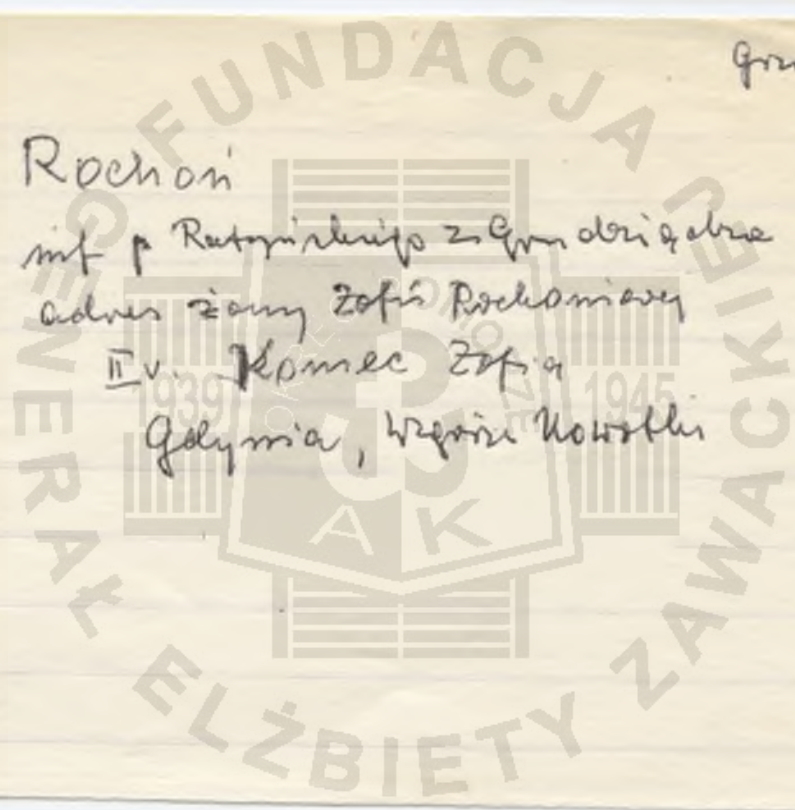 Grz
Rochoń
inf p Ratyńskiego z Grudziądza
adres żony Zofii Rochoniowej
II v. Komec Zofia
Gdynia, Wzgórze Nowotki
FUNDACJA
GENERAŁ ELŻBIETY ZAWACKIEJ
ARMII KRAJOWEJ POMORZE
1939 1945
AK